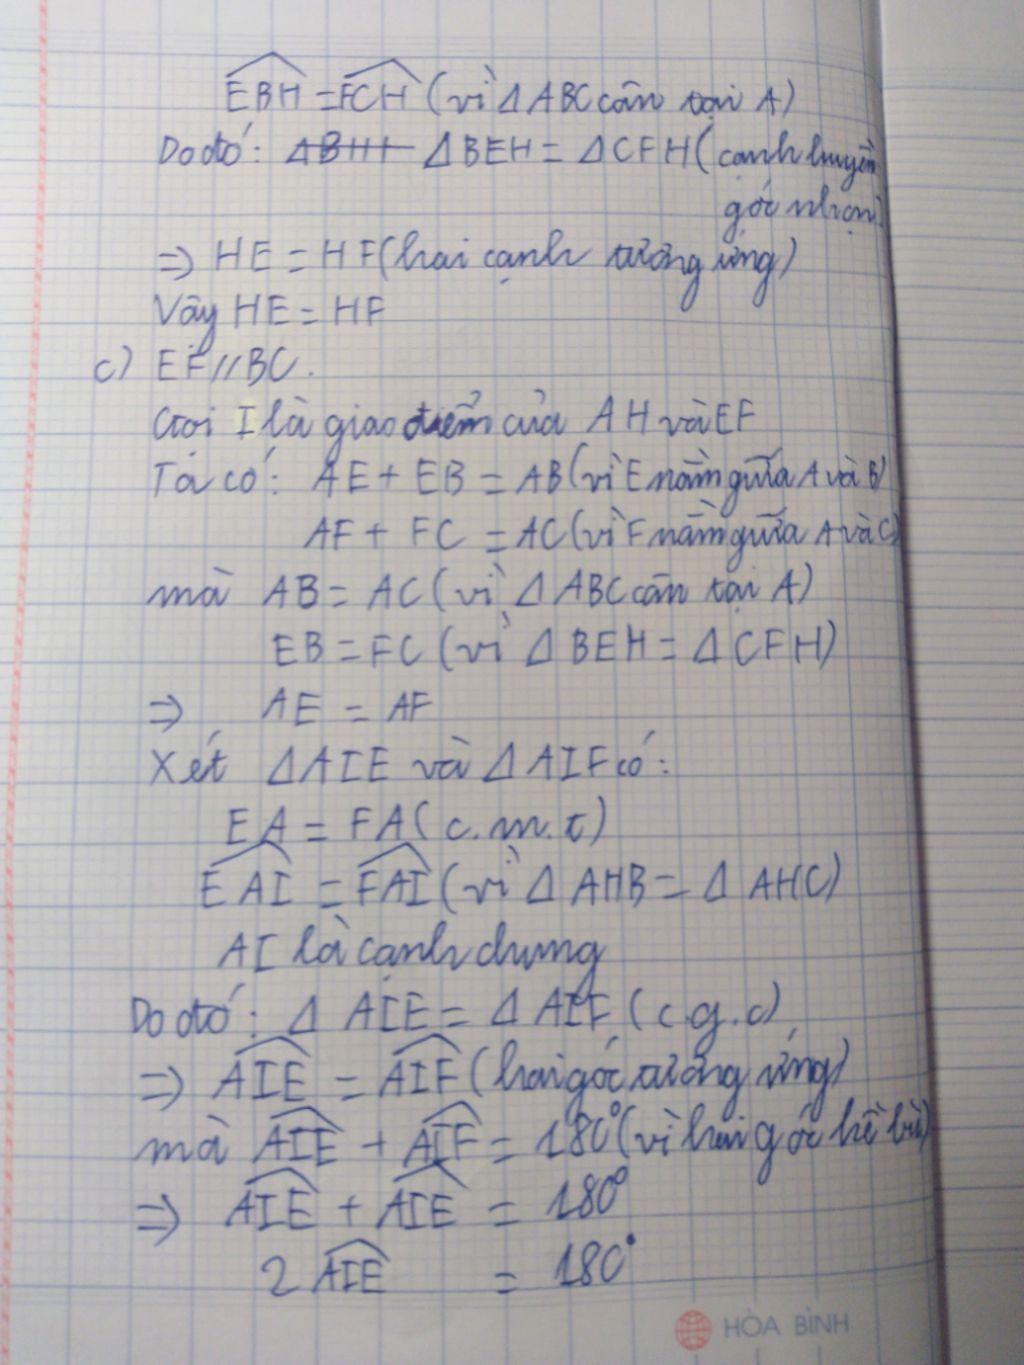 EBH = FCH (vì Δ ABC cân tại A)
Do đó: ΔBHI ΔBEH = ΔCFH (cạnh huyền
góc nhọn)
⇒ HE = HF (hai cạnh tương ứng)
Vậy HE = HF
c) EF // BC.
Gọi I là giao điểm của AH và EF
Ta có: AE + EB = AB (vì E nằm giữa A và B)
AF + FC = AC (vì F nằm giữa A và C)
mà AB = AC (vì Δ ABC cân tại A)
EB = FC (vì Δ BEH = Δ CFH)
⇒ AE = AF
Xét ΔAIE và ΔAIF có:
EA = FA (c.m.t)
EAI = FAI (vì Δ AHB = Δ AHC)
AI là cạnh chung
Do đó: Δ AIE = Δ AIF (c.g.c)
⇒ AIE = AIF (hai góc tương ứng)
mà AIE + AIF = 180° (vì hai góc kề bù)
⇒ AIE + AIE = 180°
2 AIE = 180°
HÒA BÌNH